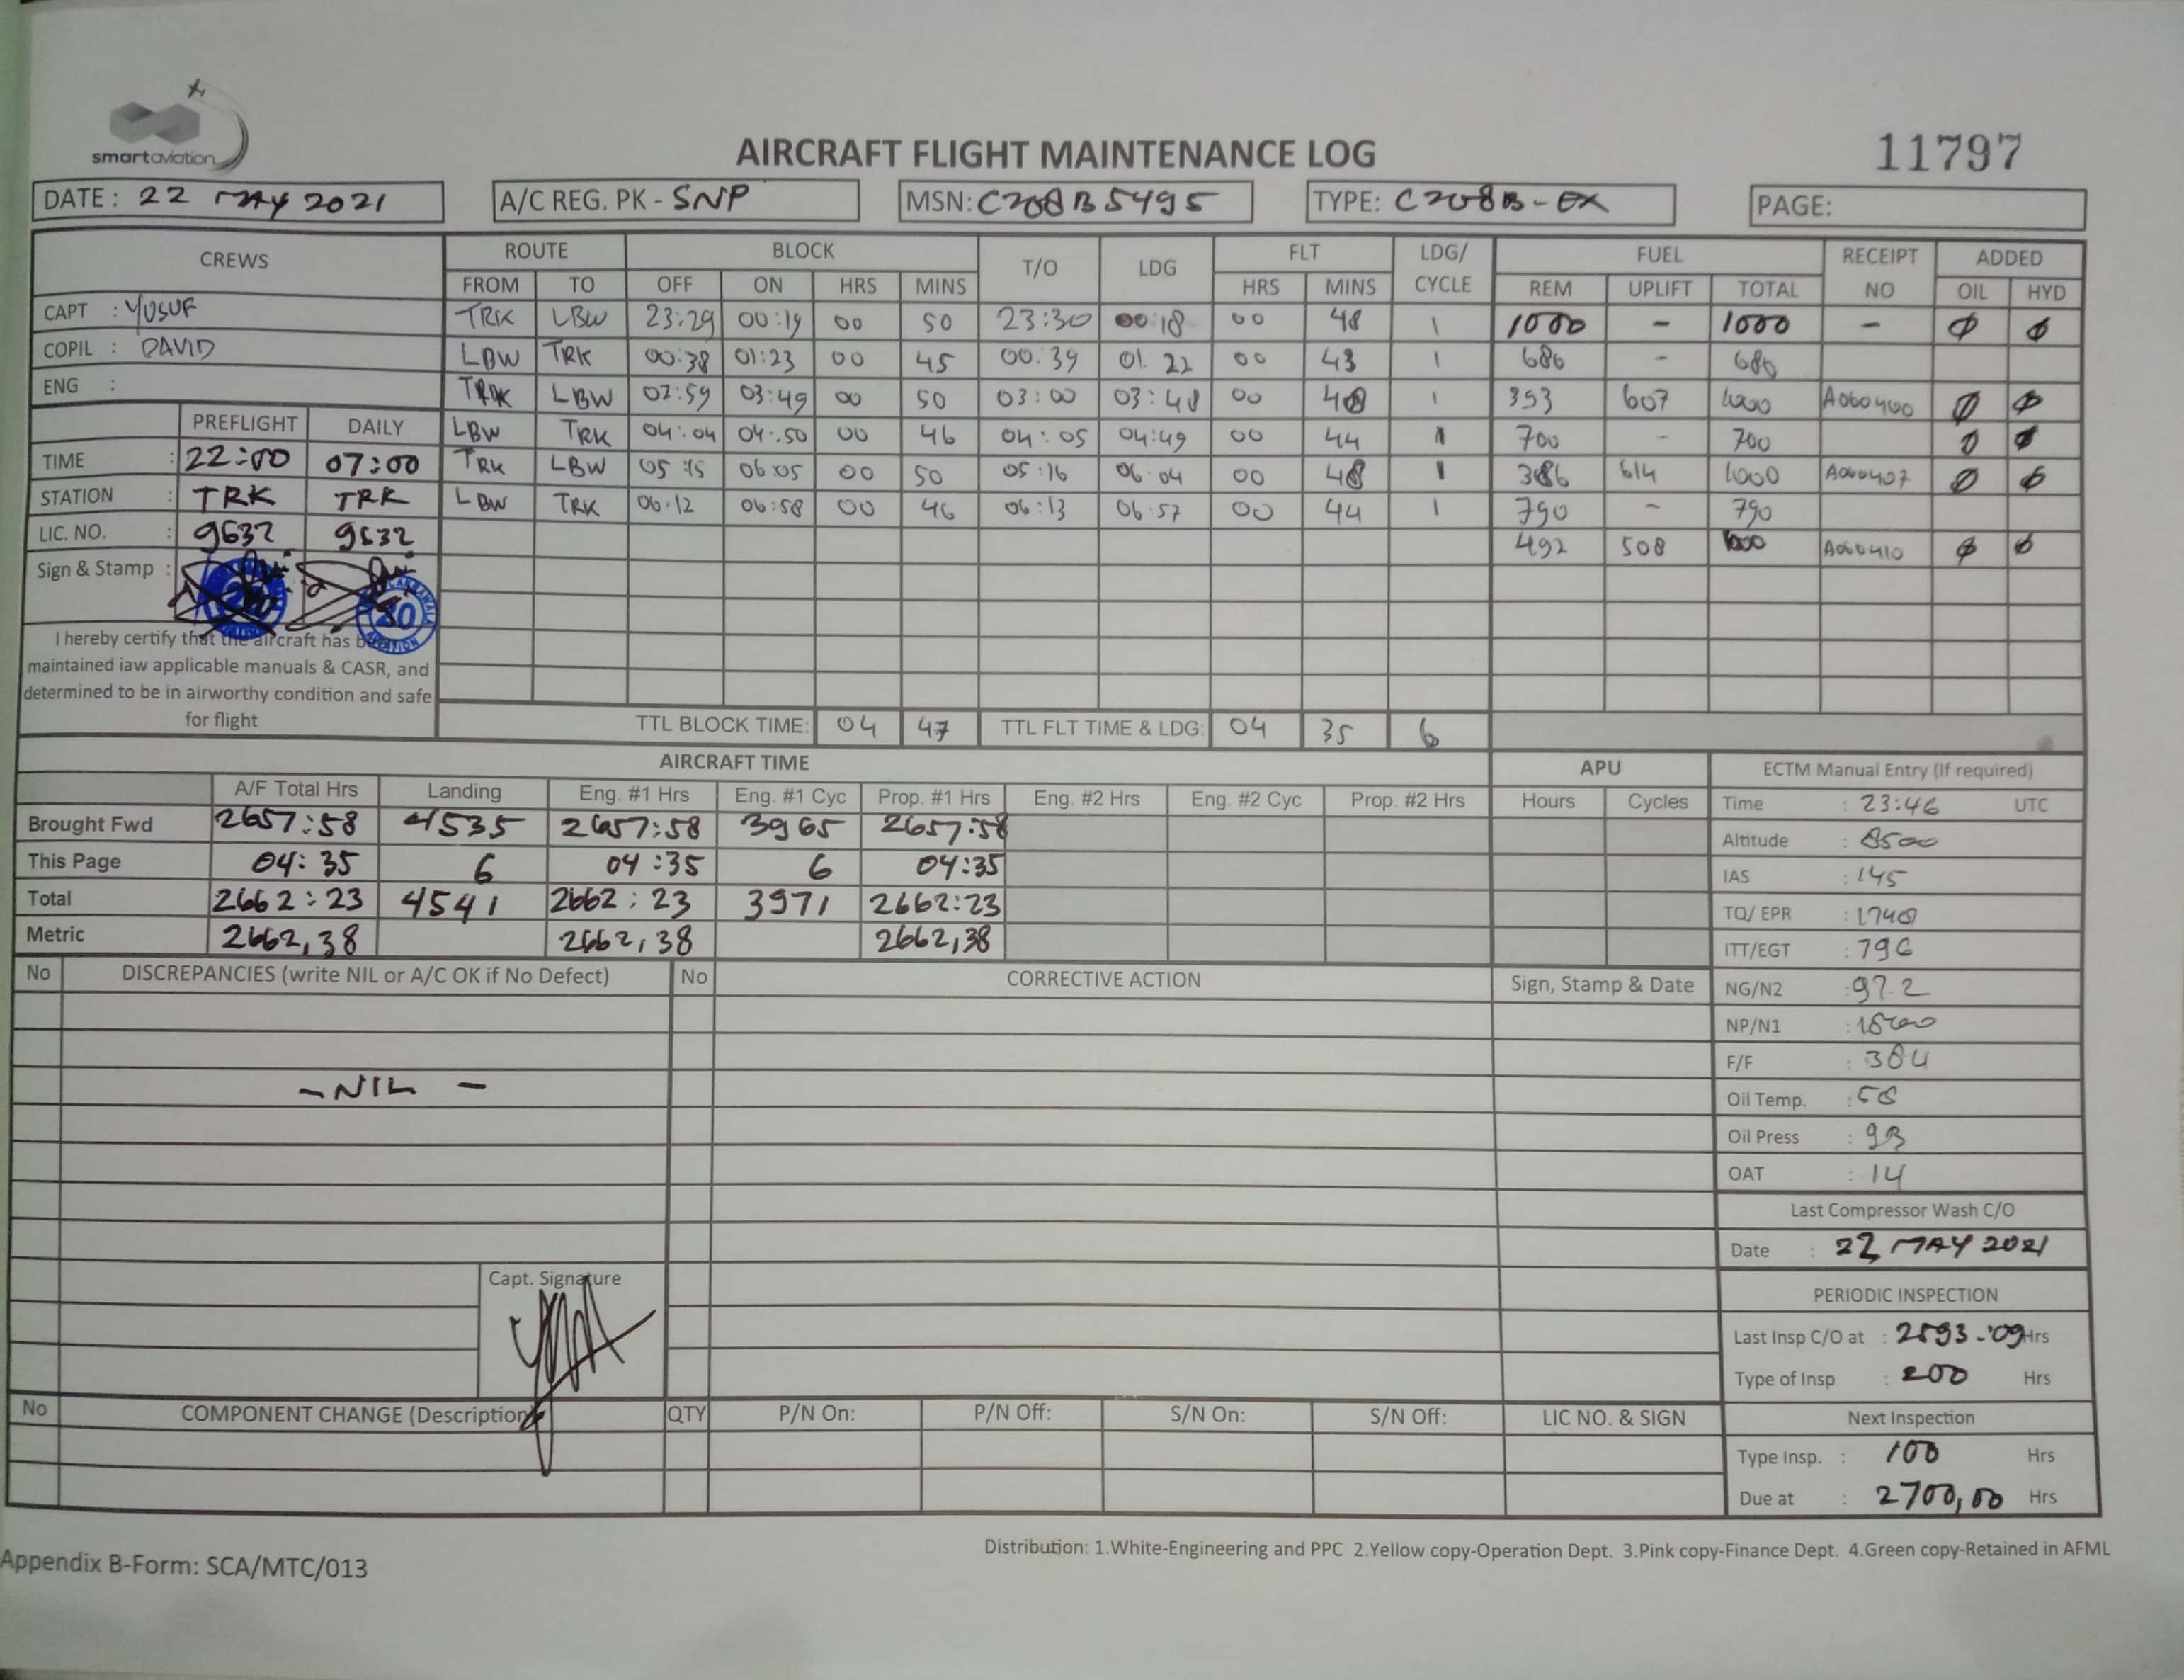 smartaviation
AIRCRAFT FLIGHT MAINTENANCE LOG
11797
DATE : 22 MAY 2021 A/C REG. PK - SNP MSN: C208B5495 TYPE: C208B-EX PAGE:
CREWS ROUTE BLOCK T/O LDG FLT LDG/ CYCLE FUEL RECEIPT NO ADDED
FROM TO OFF ON HRS MINS HRS MINS REM UPLIFT TOTAL OIL HYD
CAPT : YUSUF TRK LBW 23:29 00:19 00 50 23:30 00:18 00 48 1 1000 - 1000 - Ø Ø
COPIL : DAVID LBW TRK 00:38 01:23 00 45 00:39 01:22 00 43 1 686 - 686
ENG : TRK LBW 02:59 03:49 00 50 03:00 03:48 00 48 1 393 607 1000 A060400 Ø Ø
PREFLIGHT DAILY LBW TRK 04:04 04:50 00 46 04:05 04:49 00 44 1 700 - 700 Ø Ø
TIME : 22:00 07:00 TRK LBW 05:15 06:05 00 50 05:16 06:04 00 48 1 386 614 1000 A060407 Ø Ø
STATION : TRK TRK LBW TRK 06:12 06:58 00 46 06:13 06:57 00 44 1 790 - 790
LIC. NO. : 9632 9632 492 508 1000 A060410 Ø Ø
Sign & Stamp :
I hereby certify that the aircraft has been
maintained iaw applicable manuals & CASR, and
determined to be in airworthy condition and safe
for flight
TTL BLOCK TIME: 04 47 TTL FLT TIME & LDG: 04 35 6
AIRCRAFT TIME APU ECTM Manual Entry (If required)
A/F Total Hrs Landing Eng. #1 Hrs Eng. #1 Cyc Prop. #1 Hrs Eng. #2 Hrs Eng. #2 Cyc Prop. #2 Hrs Hours Cycles Time : 23:46 UTC
Brought Fwd 2657:58 4535 2657:58 3965 2657:58 Altitude : 8500
This Page 04:35 6 04:35 6 04:35 IAS : 145
Total 2662:23 4541 2662:23 3971 2662:23 TQ/ EPR : 1740
Metric 2662,38 2662,38 2662,38 ITT/EGT : 796
No DISCREPANCIES (write NIL or A/C OK if No Defect) No CORRECTIVE ACTION Sign, Stamp & Date NG/N2 : 97.2
NP/N1 :
F/F : 364
- NIL - Oil Temp. : 58
Oil Press : 93
OAT : 14
Last Compressor Wash C/O
Date : 22 MAY 2021
Capt. Signature
PERIODIC INSPECTION
Last Insp C/O at : 2593:09 Hrs
Type of Insp : 200 Hrs
No COMPONENT CHANGE (Description) QTY P/N On: P/N Off: S/N On: S/N Off: LIC NO. & SIGN Next Inspection
Type Insp. : 100 Hrs
Due at : 2700,00 Hrs
Distribution: 1.White-Engineering and PPC 2.Yellow copy-Operation Dept. 3.Pink copy-Finance Dept. 4.Green copy-Retained in AFML
Appendix B-Form: SCA/MTC/013